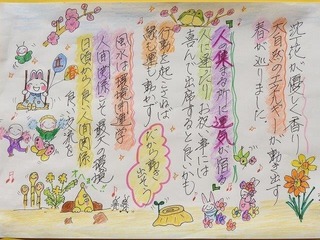 沈丁花が優しく香り
大自然のエネルギーが動き出す
春が巡りました
人の集まる所に運気が宿る
人に逢ったり お祝い事には
喜んで出席すると良いかも
行動を起こさねば
縁も運も動かず
だから動き出そう
風水は環境開運学
人間関係こそ最大の環境
日頃から良い人間関係
良い気を
春